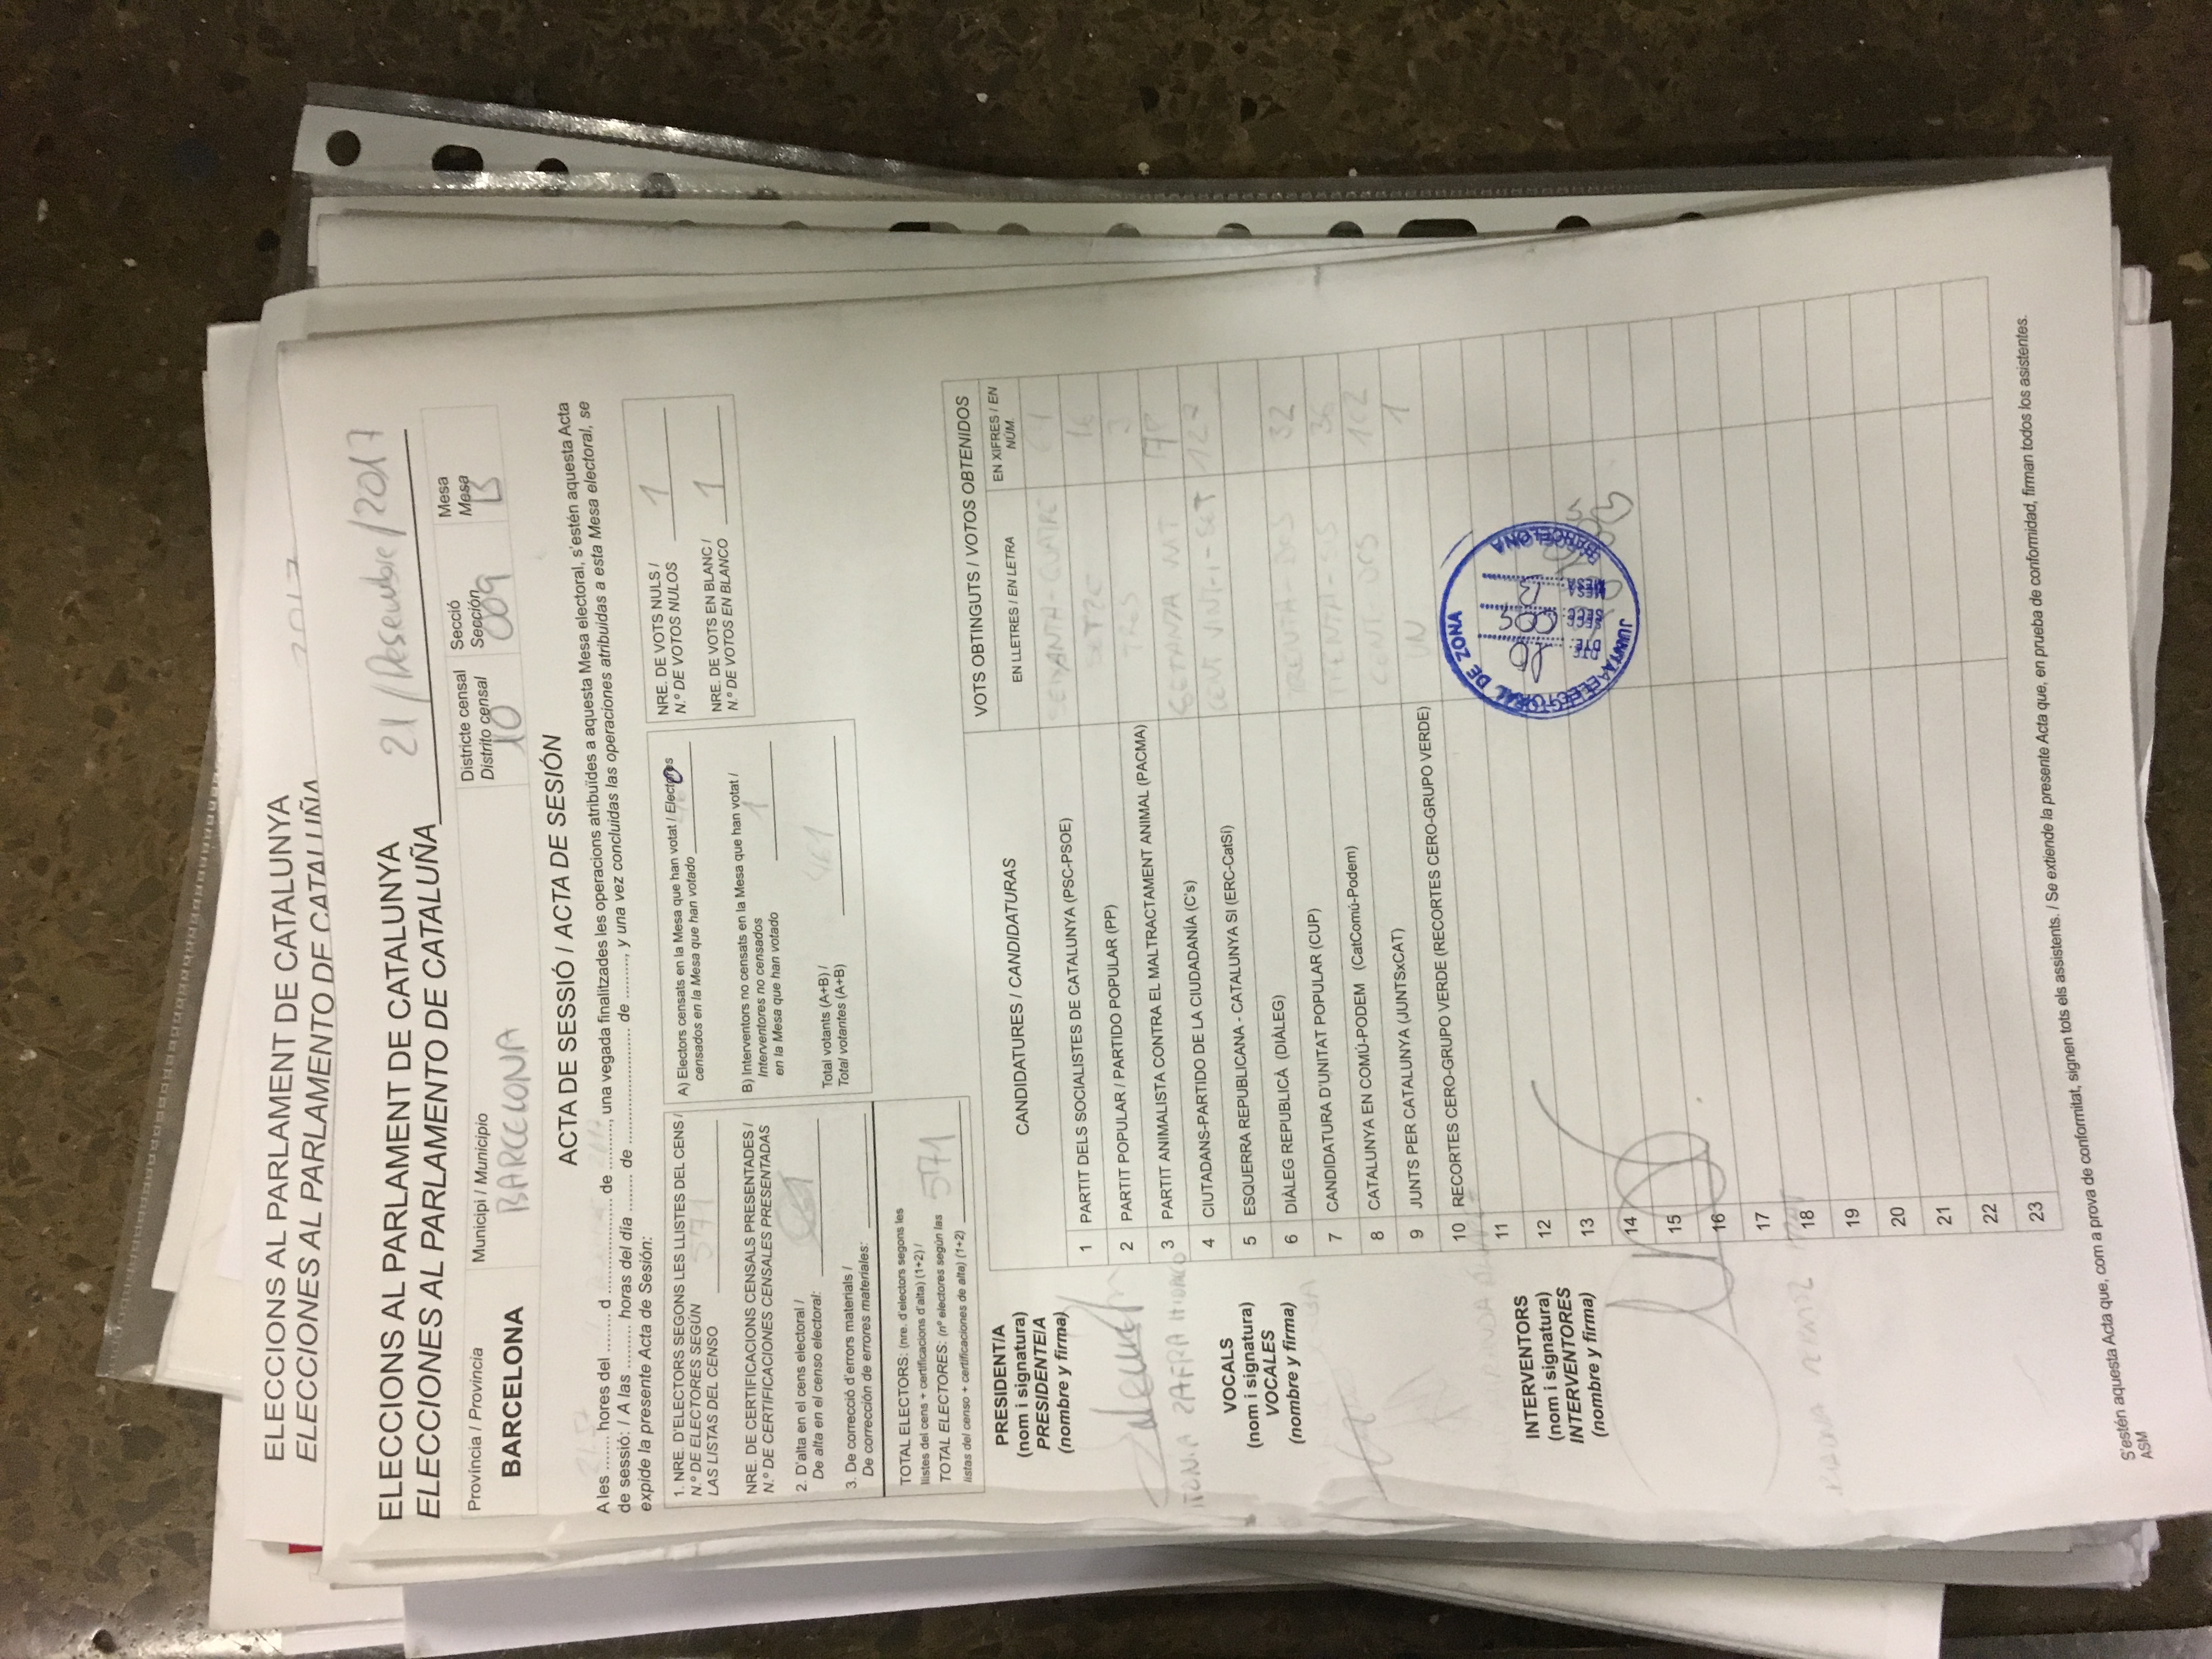 ELECCIONS AL PARLAMENT DE CATALUNYA
ELECCIONES AL PARLAMENTO DE CATALUÑA
2017
ELECCIONS AL PARLAMENT DE CATALUNYA
ELECCIONES AL PARLAMENTO DE CATALUÑA 21/Desembre/2017
Província / Provincia
BARCELONA
Municipi / Municipio
BARCELONA
Districte censal
Distrito censal
10
Secció
Sección
009
Mesa
Mesa
B
ACTA DE SESSIÓ / ACTA DE SESIÓN
A les ....... hores del ........ d .................... de .........., una vegada finalitzades les operacions atribuïdes a aquesta Mesa electoral, s'estén aquesta Acta
de sessió: / A las ......... horas del día ....... de ........................ de ........., y una vez concluidas las operaciones atribuidas a esta Mesa electoral, se
expide la presente Acta de Sesión:
1. NRE. D'ELECTORS SEGONS LES LLISTES DEL CENS /
N.º DE ELECTORES SEGÚN
LAS LISTAS DEL CENSO 571
NRE. DE CERTIFICACIONS CENSALS PRESENTADES /
N.º DE CERTIFICACIONES CENSALES PRESENTADAS
2. D'alta en el cens electoral /
De alta en el censo electoral:
3. De correcció d'errors materials /
De corrección de errores materiales:
TOTAL ELECTORS: (nre. d'electors segons les
llistes del cens + certificacions d'alta) (1+2) /
TOTAL ELECTORES: (nº electores según las
listas del censo + certificaciones de alta) (1+2) 571
A) Electors censats en la Mesa que han votat / Electores
censados en la Mesa que han votado
B) Interventors no censats en la Mesa que han votat /
Interventores no censados
en la Mesa que han votado 1
Total votants (A+B) /
Total votantes (A+B) 461
NRE. DE VOTS NULS /
N.º DE VOTOS NULOS 1
NRE. DE VOTS EN BLANC /
N.º DE VOTOS EN BLANCO 1
PRESIDENT/A
(nom i signatura)
PRESIDENTE/A
(nombre y firma)
ZAFRA HIDALGO
VOCALS
(nom i signatura)
VOCALES
(nombre y firma)
INTERVENTORS
(nom i signatura)
INTERVENTORES
(nombre y firma)
CANDIDATURES / CANDIDATURAS
VOTS OBTINGUTS / VOTOS OBTENIDOS
EN LLETRES / EN LETRA
EN XIFRES / EN NÚM.
1 PARTIT DELS SOCIALISTES DE CATALUNYA (PSC-PSOE) SEIXANTA-QUATRE 64
2 PARTIT POPULAR / PARTIDO POPULAR (PP) SETZE 16
3 PARTIT ANIMALISTA CONTRA EL MALTRACTAMENT ANIMAL (PACMA) TRES 3
4 CIUTADANS-PARTIDO DE LA CIUDADANÍA (C's) 78
5 ESQUERRA REPUBLICANA - CATALUNYA SI (ERC-CatSí) CENT VINT-I-SET 127
6 DIÀLEG REPUBLICÀ (DIÀLEG)
7 CANDIDATURA D'UNITAT POPULAR (CUP) TRENTA-DOS 32
8 CATALUNYA EN COMÚ-PODEM (CatComú-Podem) TRENTA-SIS 36
9 JUNTS PER CATALUNYA (JUNTSxCAT) CENT-DOS 102
10 RECORTES CERO-GRUPO VERDE (RECORTES CERO-GRUPO VERDE) UN 1
11
12
13
14
15
16
17
18
19
20
21
22
23
JUNTA ELECTORAL DE ZONA
BARCELONA
DTE: 10
SECC: 009
MESA: B
S'estén aquesta Acta que, com a prova de conformitat, signen tots els assistents. / Se extiende la presente Acta que, en prueba de conformidad, firman todos los asistentes.
ASM